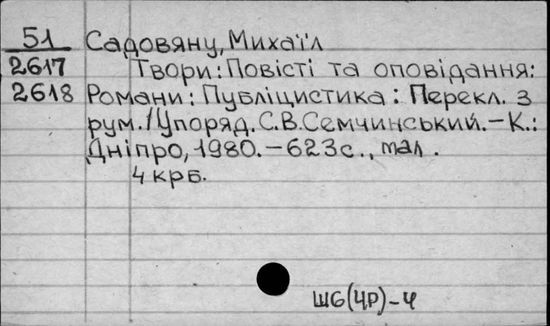 51 Садовяну, Михаїл
2617 Твори: Повісті та оповідання:
2618 Романи: Публіцистика: Перекл. з
рум./Упоряд. С.В.Семчинський.-К.:
Дніпро, 1980.-623с., мал.
4 крб.
Ш6(4Р)-4